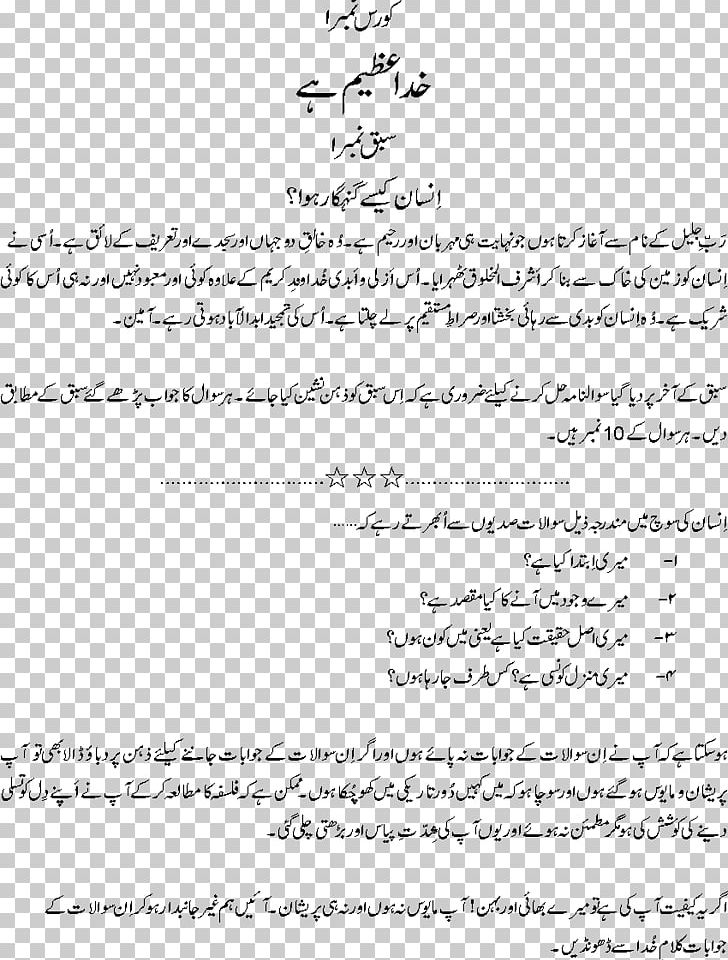 کورس نمبر ۱
خدا عظیم ہے
سبق نمبر ۱
اِنسان کیسے گنہگار ہوا؟
رَبِّ جلیل کے نام سے آغاز کرتا ہوں جو نہایت ہی مہربان اور رحیم ہے۔ وُہ خالقِ دو جہاں اور سجدے اور تعریف کے لائق ہے۔ اُسی نے
اِنسان کو زمین کی خاک سے بنا کر اَشرف المخلوق ٹھہرایا۔ اُس اَزلی و اَبدی خُداوندِ کریم کے علاوہ کوئی اور معبود نہیں اور نہ ہی اُس کا کوئی
شریک ہے۔ وُہ اِنسان کو بدی سے رہائی بخشتا اور صراطِ مستقیم پر لے چلتا ہے۔ اُس کی تمجید ابدالآباد ہوتی رہے۔ آمین۔
سبق کے آخر پر دیا گیا سوالنامہ حل کرنے کیلئے ضروری ہے کہ اِس سبق کو ذہن نشین کیا جائے۔ ہر سوال کا جواب پڑھے گئے سبق کے مطابق
دیں۔ ہر سوال کے 10 نمبر ہیں۔
............................☆☆☆............................
اِنسان کی سوچ میں مندرجہ ذیل سوالات صدیوں سے اُبھرتے رہے کہ......
۱- میری اِبتدا کیا ہے؟
۲- میرے وجود میں آنے کا کیا مقصد ہے؟
۳- میری اصل حقیقت کیا ہے یعنی میں کون ہوں؟
۴- میری منزل کونسی ہے؟ کس طرف جا رہا ہوں؟
ہو سکتا ہے کہ آپ نے اِن سوالات کے جوابات نہ پائے ہوں اور اگر اِن سوالات کے جوابات جاننے کیلئے ذہن پر دباؤ ڈالا بھی تو آپ
پریشان و مایوس ہو گئے ہوں اور سوچا ہو کہ میں کہیں دُور تاریکی میں کھو چکا ہوں۔ ممکن ہے کہ فلسفہ کا مطالعہ کر کے آپ نے اَپنے دِل کو تسلی
دینے کی کوشش کی ہو مگر مطمئن نہ ہوئے اور یوں آپ کی شِدّتِ پیاس اور بڑھتی چلی گئی۔
اگر یہ کیفیت آپ کی ہے تو میرے بھائی اور بہن! آپ مایوس نہ ہوں اور نہ ہی پریشان۔ آئیں ہم غیر جانبدار ہو کر اِن سوالات کے
جوابات کلامِ خُدا سے ڈھونڈیں۔